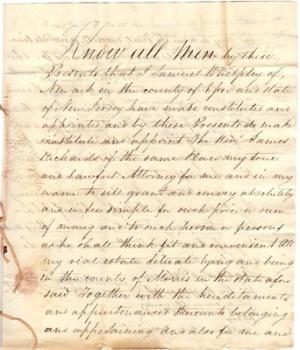 Know all Men by these
Presents that I Samuel Whelpley of
Newark in the county of Essex and state
of New Jersey have made constituted and
appointed and by these Presents do make
constitute and appoint The Revd. James
Richards of the same place my true
and Lawful Attorney for me and in my
name to sell grant and convey absolutely
and in fee simple for such price or sum
of money and to such person or persons
as he shall think fit and convenient All
my real estate situate lying and being
in the county of Morris in the state afore
said Together with the hereditaments
and appurtenances thereunto belonging
and appertaining and also for me and